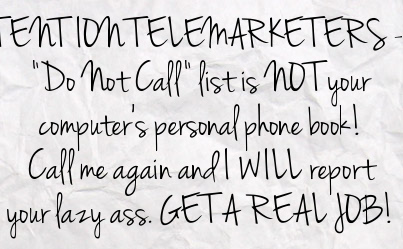 TENTION TELEMARKETERS -
"Do Not Call" list is NOT your
computer's personal phone book!
Call me again and I WILL report
your lazy ass. GET A REAL JOB!